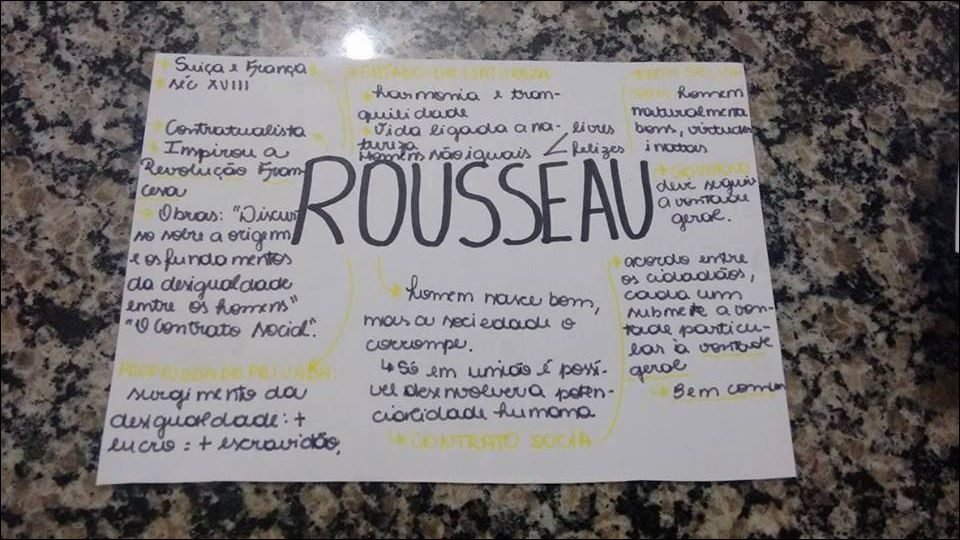 Suíça e França
séc XVIII
Contratualista
Inspirou a
Revolução Fran-
cesa
Obras: "Discur
so sobre a origem
e os fundamentos
da desigualdade
entre os homens"
"O Contrato Social".
PROPRIEDADE PRIVADA:
surgimento da
desigualdade: +
lucro = + escravidão,
ESTADO DE NATUREZA
harmonia e tran-
quilidade
Vida ligada a na-
tureza
Homens não iguais
livres
felizes
ROUSSEAU
homem nasce bom,
mas a sociedade o
corrompe.
Só em união é possí-
vel desenvolver a poten-
cialidade humana
CONTRATO SOCIA
BOM SELVA
GEM homem
naturalmente
bons, virtudes
inatas
GOVERNO
deve seguir
a vontade
geral.
acordo entre
os cidadãos,
cada um
submete a von-
tade particu-
lar à vontade
geral
Bem comum